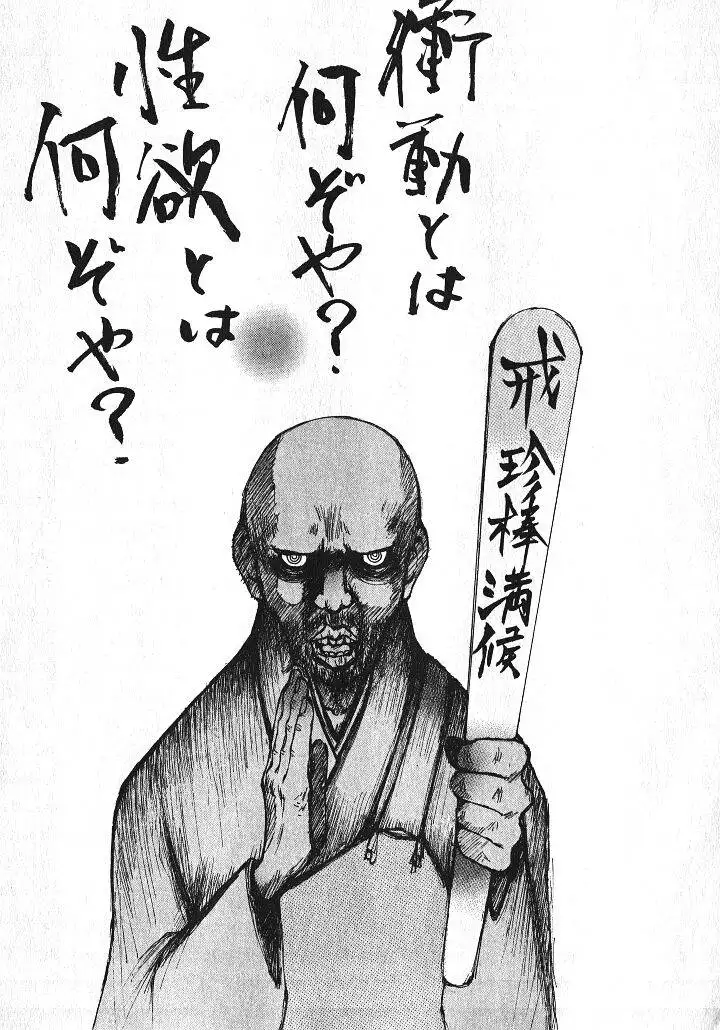 衝動とは
何ぞや?
性欲とは
何ぞや?
戒 珍棒満候